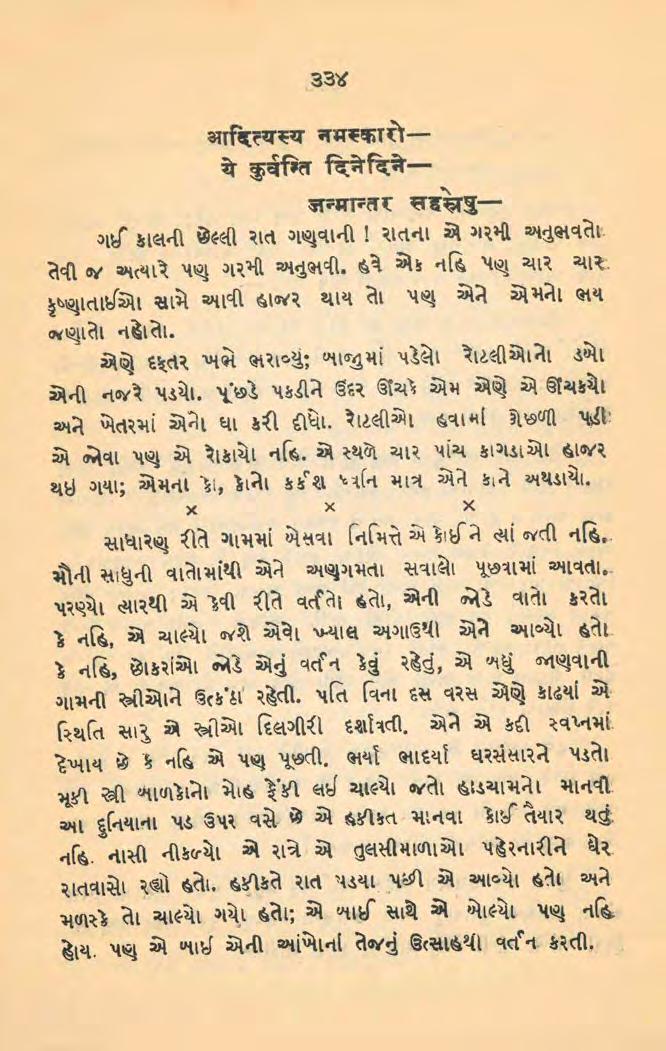 ૩૩૪
आदित्यस्य नमस्कारो—
ये कुर्वन्ति दिनेदिने—
जन्मान्तर सहस्रेषु—
ગઈ કાલની છેલ્લી રાત ગણવાની ! રાતના એ ગરમી અનુભવતો
તેવી જ અત્યારે પણ ગરમી અનુભવી. હવે એક નહિ પણ ચાર ચાર
કૃષ્ણાતાઈઓ સામે આવી હાજર થાય તો પણ એને એમનો ભય
જણાતો નહોતો.
એણે દફતર ખભે ભરાવ્યું; બાજુમાં પડેલો રોટલીઓનો ડબો
એની નજરે પડયો. પૂંછડે પકડીને ઉંદર ઊંચકે એમ એણે એ ઊંચકયો
અને ખેતરમાં એનો ઘા કરી દીધો. રોટલીઓ હવામાં ઊછળી પડી
એ જોવા પણ એ રોકાયો નહિ. એ સ્થળે ચાર પાંચ કાગડાઓ હાજર
થઇ ગયા; એમના કો, કોનો કર્કશ ધ્વનિ માત્ર એને કાને અથડાયો.
× × ×
સાધારણ રીતે ગામમાં બેસવા નિમિત્તે એ કોઈને ત્યાં જતી નહિ.
મૌની સાધુની વાતોમાંથી એને અણગમતા સવાલો પૂછવામાં આવતા.
પરણ્યો ત્યારથી એ કેવી રીતે વર્તતો હતો, એની જોડે વાતો કરતો
કે નહિ, એ ચાલ્યો જશે એવો ખ્યાલ અગાઉથી એને આવ્યો હતો
કે નહિ, છોકરાંઓ જોડે એનું વર્તન કેવું રહેતું, એ બધું જાણવાની
ગામની સ્ત્રીઓને ઉત્કંઠા રહેતી. પતિ વિના દસ વરસ એણે કાઢયાં એ
સ્થિતિ સારુ એ સ્ત્રીઓ દિલગીરી દર્શાવતી. એને એ કદી સ્વપ્નમાં
દેખાય છે કે નહિ એ પણ પૂછતી. ભર્યા ભાદર્યા ઘરસંસારને પડતો
મૂકી સ્ત્રી બાળકોનો મોહ ફેંકી લઇ ચાલ્યો જતો હાડચામનો માનવી
આ દુનિયાના પડ ઉપર વસે છે એ હકીકત માનવા કોઈ તૈયાર થતું
નહિ. નાસી નીકળ્યો એ રાત્રે એ તુલસીમાળાઓ પહેરનારીને ઘેર
રાતવાસો રહ્યો હતો. હકીકતે રાત પડયા પછી એ આવ્યો હતો અને
મળસ્કે તો ચાલ્યો ગયો હતો; એ બાઈ સાથે એ બોલ્યો પણ નહિ
હોય. પણ એ બાઈ એની આંખોનાં તેજનું ઉત્સાહથી વર્તન કરતી.